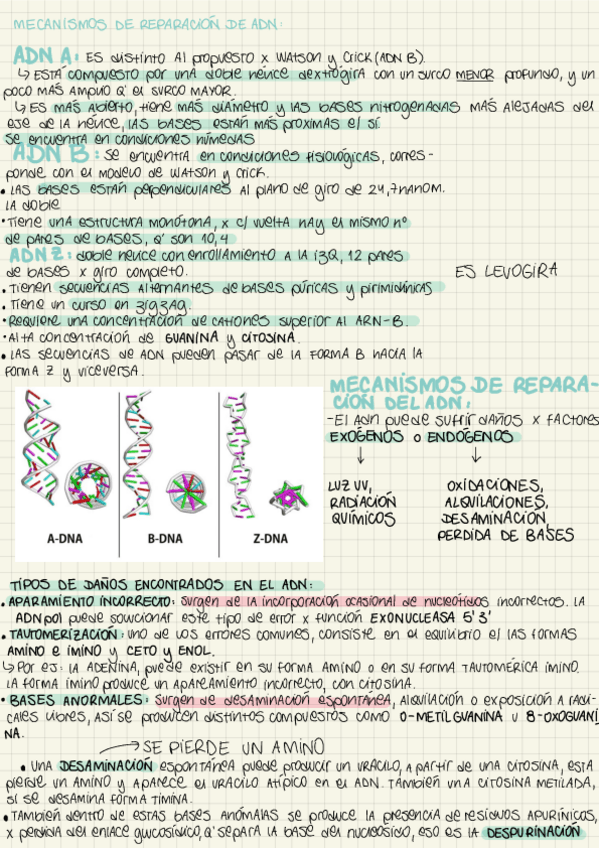 MECANISMOS DE REPARACIÓN DE ADN:
ADN A: ES distinto Al propuesto x WATSON y CRICK (ADN B).
↳ ESTÁ compuesto por una doble hélice dextrógira con un surco MENOR profundo, y un
poco MÁS AMPLIO Q' el SURCO MAYOR.
↳ ES MÁS Abierto, tiene MÁS diámetro y las bases nitrogenadas MÁS Alejadas del
eje de la hélice, las BASES están MÁS próximas e/ sí
Se encuentra en condiciones húmedas
ADN B: Se encuentra en condiciones fisiológicas, corres-
ponde con el modelo de WATSON y CRICK.
• LAS BASES ESTÁN perpendiculares Al plano de giro de 24,7 nanom.
LA doble
• Tiene una estructura monótona, x c/ vuelta hay el mismo nº
de pares de bases, Q' son 10,4
ADN Z: doble hélice con enrollamiento A la IZQ, 12 pares
de bases x giro completo.
ES LEVOGIRA
• Tienen secuencias Alternantes de bases púricas y pirimidínicas
• Tiene un curso en zigzag
• Requiere una concentración de cationes superior al ARN-B.
• Alta concentración de GUANINA y CITOSINA.
• LAS secuencias de ADN pueden pasar de la forma B hacia la
forma Z y viceversa.
A-DNA B-DNA Z-DNA
MECANISMOS DE REPARA-
CIÓN DEL ADN:
- El Adn puede sufrir daños x factores
EXÓGENOS o ENDÓGENOS
↓ ↓
LUZ UV, OXIDACIONES,
RADIACIÓN ALQUILACIONES,
QUÍMICOS DESAMINACIÓN,
PERDIDA DE BASES
TIPOS DE DAÑOS ENCONTRADOS EN EL ADN:
• APARAMIENTO INCORRECTO: Surgen de la incorporación ocasional de nucleótidos incorrectos. LA
ADN pol puede solucionar este tipo de error x función EXONUCLEASA 5' 3'
• TAUTOMERIZACIÓN: uno de los errores comunes, consiste en el equilibrio e/ las formas
AMINO e IMINO y CETO y ENOL.
↳ Por ej: la ADENINA, puede existir en su forma AMINO o en su forma TAUTOMÉRICA IMINO.
LA forma imino produce un apareamiento incorrecto, con citosina.
• BASES ANORMALES: Surgen de desaminación espontánea, Alquilación o exposición A radi-
cales libres, Así se producen distintos compuestos como O-METIL GUANINA u 8-OXOGUANI
NA.
→ SE PIERDE UN AMINO
• UNA DESAMINACIÓN espontánea puede producir un uracilo, A partir de una citosina, esta
pierde un AMINO y Aparece el uracilo Atípico en el ADN. También una citosina metilada,
si se desamina forma timina.
• También dentro de estas bases anómalas se produce la presencia de residuos Apurínicos,
x perdida del enlace glucosídico, Q' separa la base del nucleósido, eso es la DESPURINACIÓN